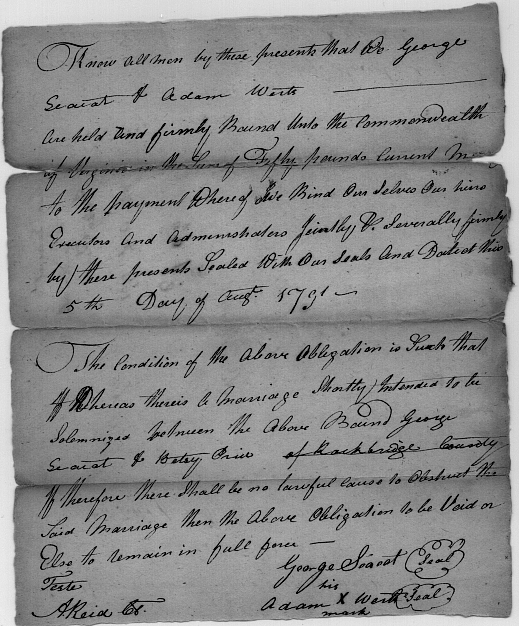 Know all men by these presents that We George
Seacat & Adam Werts
are held and firmly Bound Unto the Commonwealth
of Virginia in the Sum of Fifty pounds Current
to the payment Whereof We Bind Our Selves Our hiers
Executors And Administrators Jointly & Severally firmly
by these presents Sealed With Our Seals And Dated this
5th Day of Augt. 1791
The Condition of the Above Obligation is Such that
If Whereas there is a Marriage Shortly Intended to be
Solemnized between the Above Bound George
Seacat & Betsy Price of Rockbridge County
If therefore there Shall be no lawful Cause to Obstruct the
Said Marriage then the Above Obligation to be Void or
Else to remain in full force
Teste George Seacat Seal
his
A Reid Adam X Werts Seal
mark